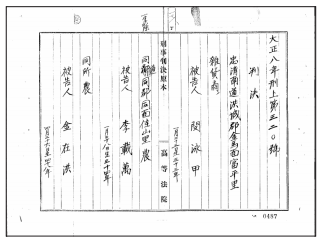 大正八年刑上第三二〇號
判決
忠淸南道洪城郡金馬面富平里
雜貨商
被告人 閔泳甲
刑事判決原本
高等法院
同道同郡同面佳山里 農
被告人 李載萬
同所 農
被告人 金在洪
0487